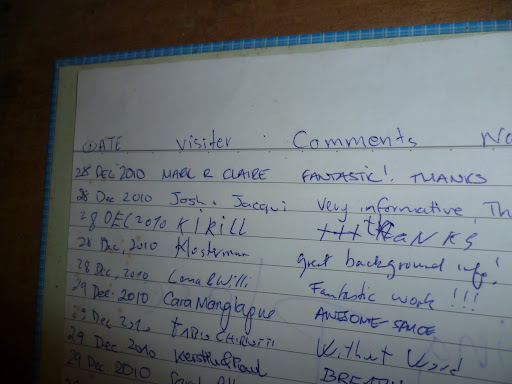 DATE Visiter Comments No
28 DEC 2010 MARK & CLAIRE FANTASTIC! THANKS
28 Dec 2010 Josh & Jacqui Very informative, Th
28 DEC 2010 Kikill thANKS
28 Dec, 2010 Klosterman great background info!
28 Dec, 2010 Fantastic work!!!
29 Dec 2010 Cara Manglapue AWESOME SAUCE
29 Dec 2010 Without Word
29 Dec 2010
29 Dec 2010 BREATH